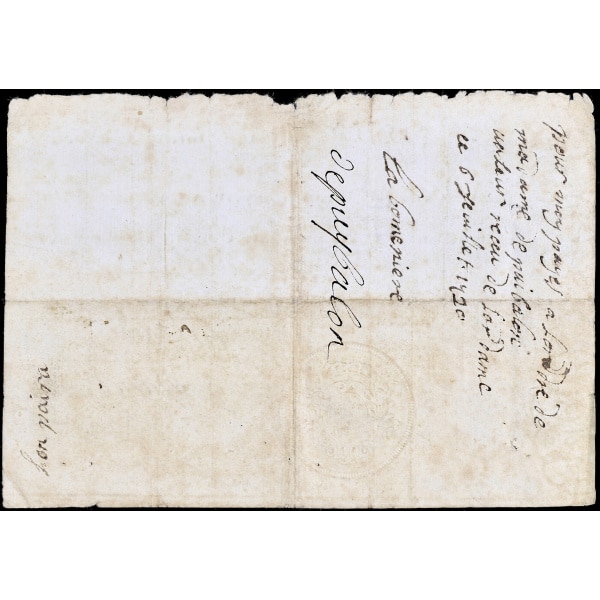 pour moy payes a Lordre de
madame de puibalon
valeur receu de La Dame
ce 6 juillet 1720
La bomeniere
depuybalon